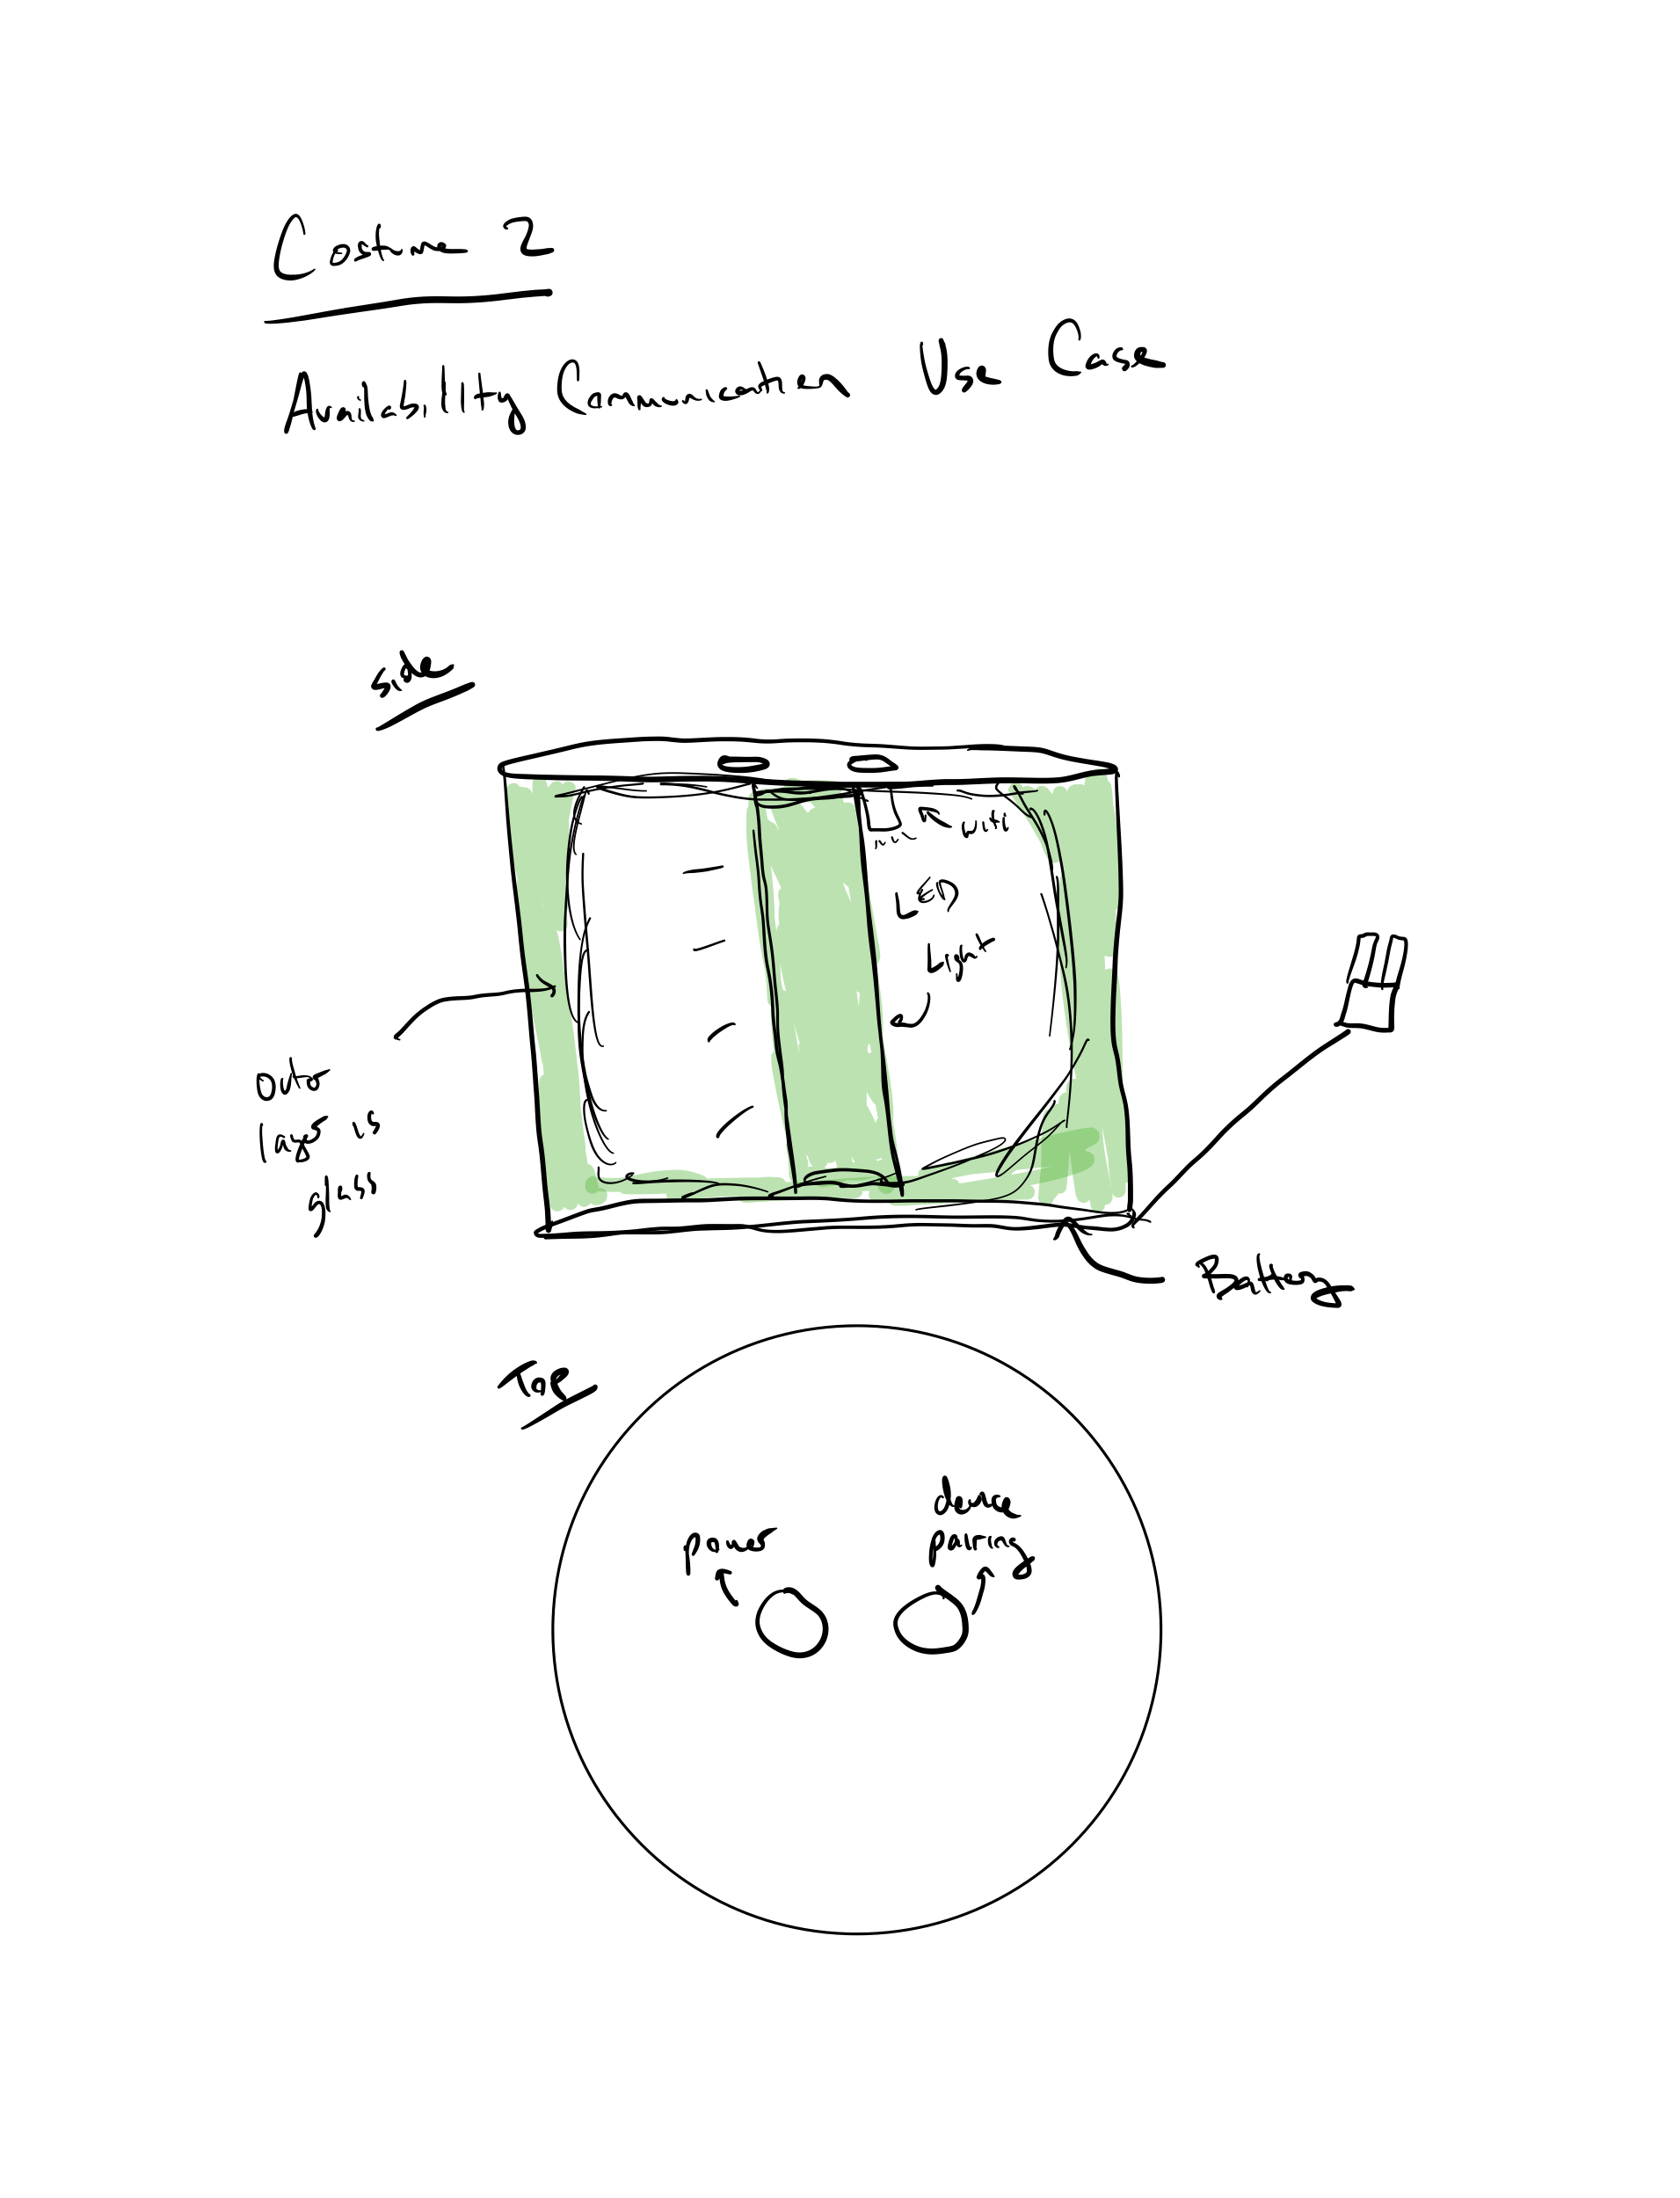 Costume 2
Availability Communication Use Case
side
wifi
LED
Light
outer
layer is
glass
Battery
Top
device
power
pairing